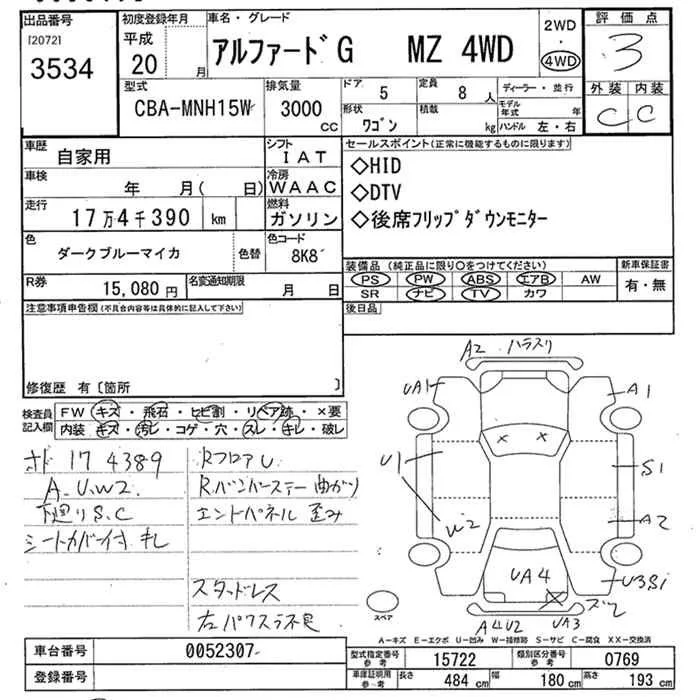 出品番号 初度登録年月 車名・グレード 2WD 評価点
[2072] 平成 アルファードG MZ 4WD ・ 3
3534 20 月 4WD 外装 内装
型式 排気量 ドア 5 定員 8 人 ディーラー・並行 C C
CBA-MNH15W 3000 cc 形状 ワゴン 積載 kg モデル年式 年 ハンドル 左・右
車歴 自家用 シフト IAT セールスポイント(正常に機能するものに限ります)
車検 年 月( 日) 冷房 WAAC ◇HID
走行 17万4千390 km 燃料 ガソリン ◇DTV
◇後席フリップダウンモニター
色 ダークブルーマイカ 色替 色コード 8K8
装備品(純正品に限り○をつけてください) 新車保証書
R券 15,080円 名変通知期限 月 日 PS PW ABS エアB AW 有・無
SR ナビ TV カワ
注意事項申告欄(不具合内容等は具体的に記入して下さい) 後日品
修復歴 有〔箇所 〕
検査員記入欄 FW キズ・飛石・ヒビ割・リペア跡・×要
内装 キズ・汚レ・コゲ・穴・スレ・キレ・破レ
17 4389 RフロアU
A.U.W2. Rバンパーステー曲がり
下廻りS.C エンドパネル歪み
シートカバー付 キレ
スタッドレス
左パワスラ不良
A2
UA1
A1
U1
S1
W2
A2
UA4
U3S1
スペア
A4U2 UA3
A-キズ E-エクボ U-凹み W-補修跡 S-サビ C-腐食 XX-交換済
車台番号 0052307 型式指定番号 参考 15722 類別区分番号 参考 0769
登録番号 車庫証明用 参考 長さ 484 cm 幅 180 cm 高さ 193 cm